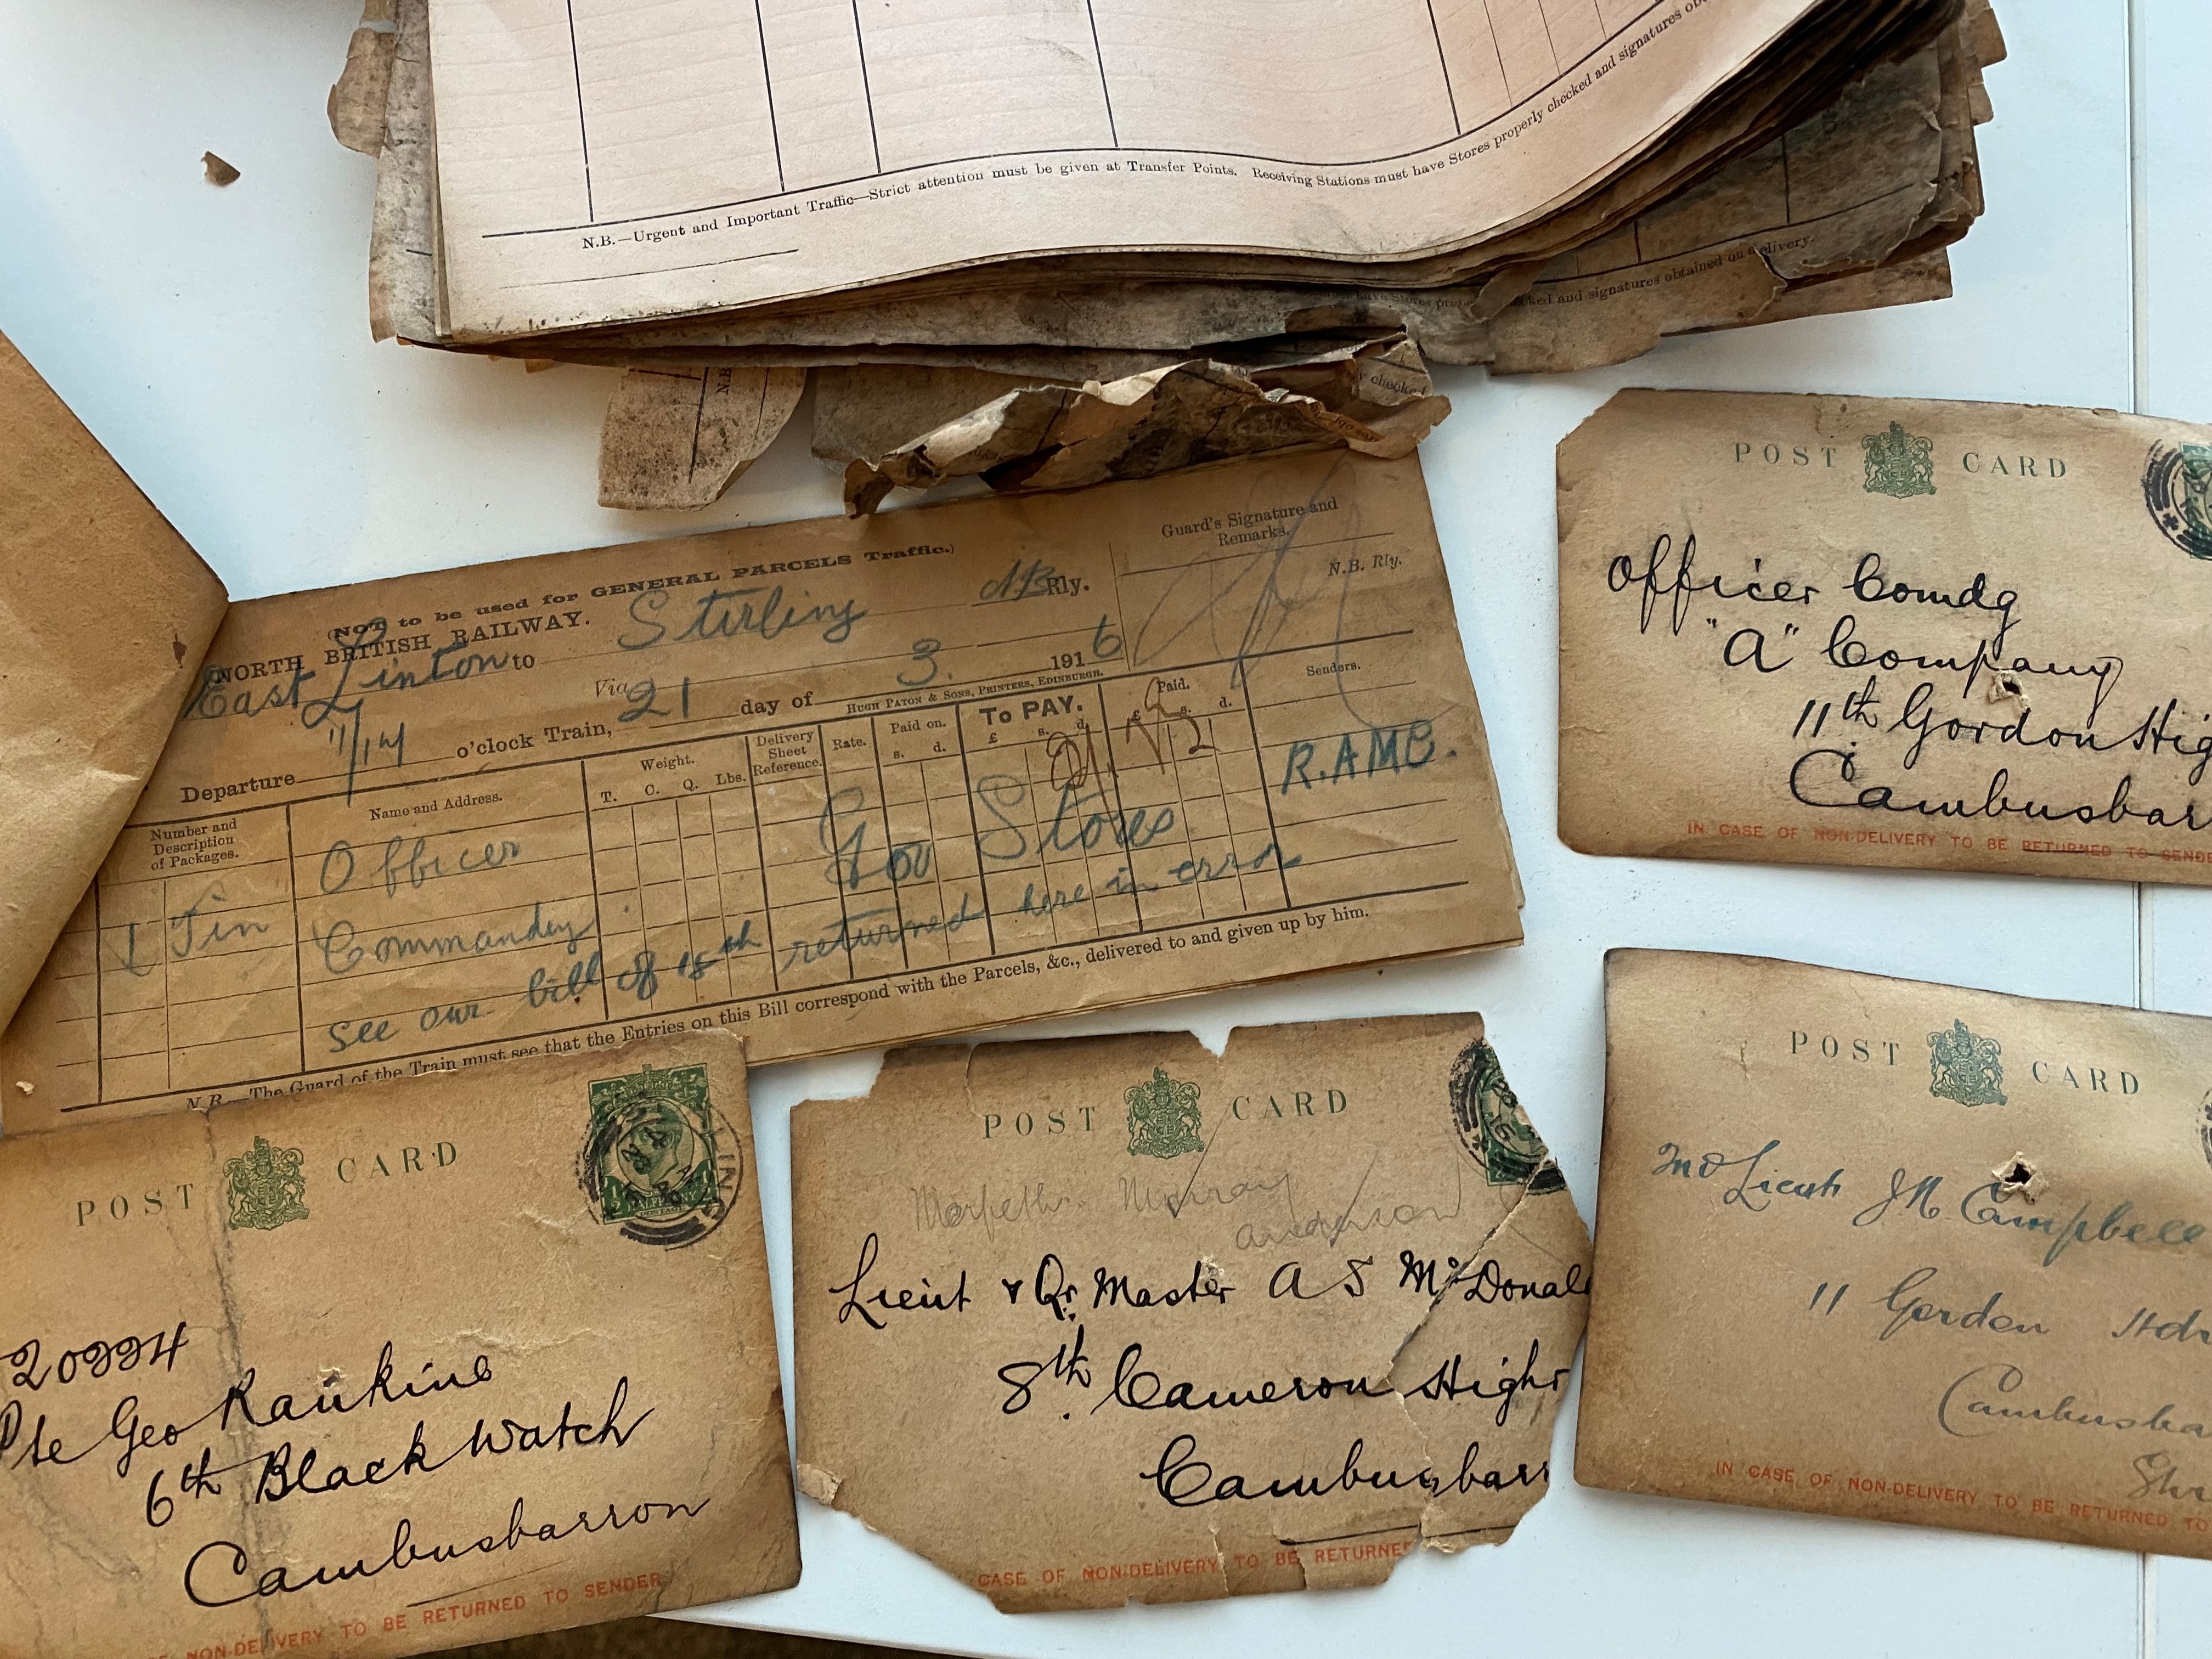 N.B.—Urgent and Important Traffic—Strict attention must be given at Transfer Points. Receiving Stations must have Stores properly checked and signatures
checked and signatures obtained on delivery.
N.B
checked
(NOT to be used for GENERAL PARCELS Traffic.)
NORTH BRITISH RAILWAY.
East Linton to Stirling NB Rly.
Via
Departure o'clock Train, 21 day of 3 1916
HUGH PATON & SONS, PRINTERS, EDINBURGH.
Guard's Signature and
Remarks.
N.B. Rly.
Number and
Description
of Packages.
Name and Address.
Weight.
T. C. Q. Lbs.
Delivery
Sheet
Reference.
Rate.
Paid on.
s. d.
To PAY.
£ s. d.
Paid.
£ s. d.
Senders.
1 Tin Officer Gov Stores R.AMC.
Commanding
see our bill of 18th returned here in error
N.B.—The Guard of the Train must see that the Entries on this Bill correspond with the Parcels, &c., delivered to and given up by him.
POST CARD
Officer Comdg
"A" Company
11th Gordon Hig
Cambusbar
IN CASE OF NON-DELIVERY TO BE RETURNED TO SENDE
POST CARD
HALFPENNY
20994
Pte Geo Rankine
6th Black Watch
Cambusbarron
NON-DELIVERY TO BE RETURNED TO SENDER
POST CARD
Morpeth Murray
anderson
Lieut & Qr Master A S McDonal
8th Cameron Highr
Cambusbarr
CASE OF NON-DELIVERY TO BE RETURNE
POST CARD
Lieut J M Campbell
11 Gordon Hdr
Cambusba
IN CASE OF NON-DELIVERY TO BE RETURNED TO